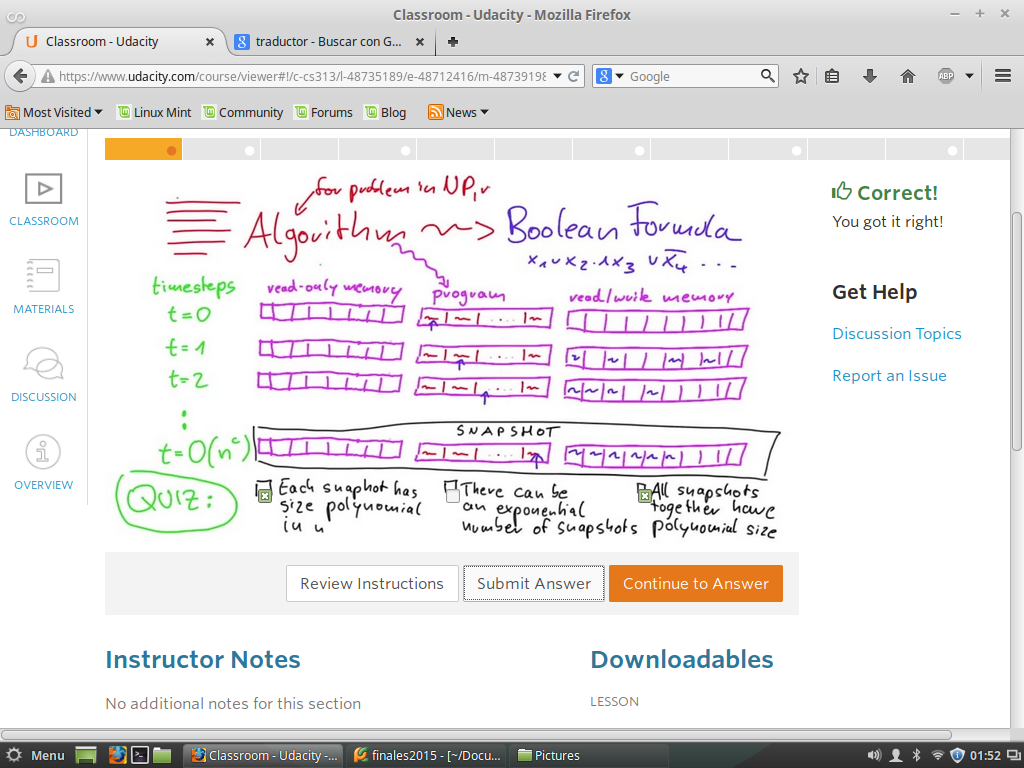 Classroom - Udacity - Mozilla Firefox
Classroom - Udacity
traductor - Buscar con G...
https://www.udacity.com/course/viewer#!/c-cs313/l-48735189/e-48712416/m-48739198
Google
ABP
Most Visited
Linux Mint
Community
Forums
Blog
News
DASHBOARD
CLASSROOM
MATERIALS
DISCUSSION
OVERVIEW
for problem in NP, r
Algorithm ~> Boolean Formula
x1 ∨ x2 ∧ x3 ∨ x̄4 ...
timesteps
read-only memory
program
read/write memory
t=0
t=1
t=2
SNAPSHOT
t=O(n^c)
QUIZ:
Each snaphot has
size polynomial
in n
There can be
an exponential
number of snapshots
All snapshots
together have
polynomial size
Correct!
You got it right!
Get Help
Discussion Topics
Report an Issue
Review Instructions
Submit Answer
Continue to Answer
Instructor Notes
No additional notes for this section
Downloadables
LESSON
Menu
Classroom - Udacity -...
finales2015 - [~/Docu...
Pictures
01:52